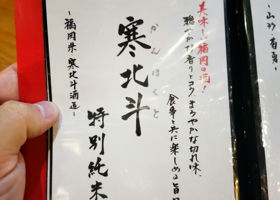 美味しい福岡の酒!
穏やかな香りとコク まろやかな切れ味、
食事と共に楽しめる旨
寒北斗
かんほくと
特別純米
~福岡県 寒北斗酒造~